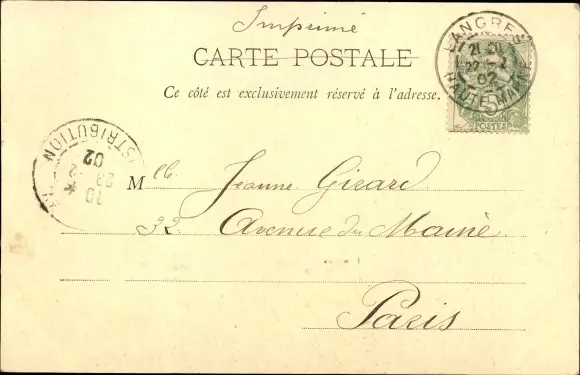 Imprimé
CARTE POSTALE
Ce côté est exclusivement réservé à l'adresse.
LANGRES
02
HAUTE-MARNE
5
POSTES
DISTRIBUTION
10
02
Mlle Jeanne Girard
32 Avenue du Maine
Paris